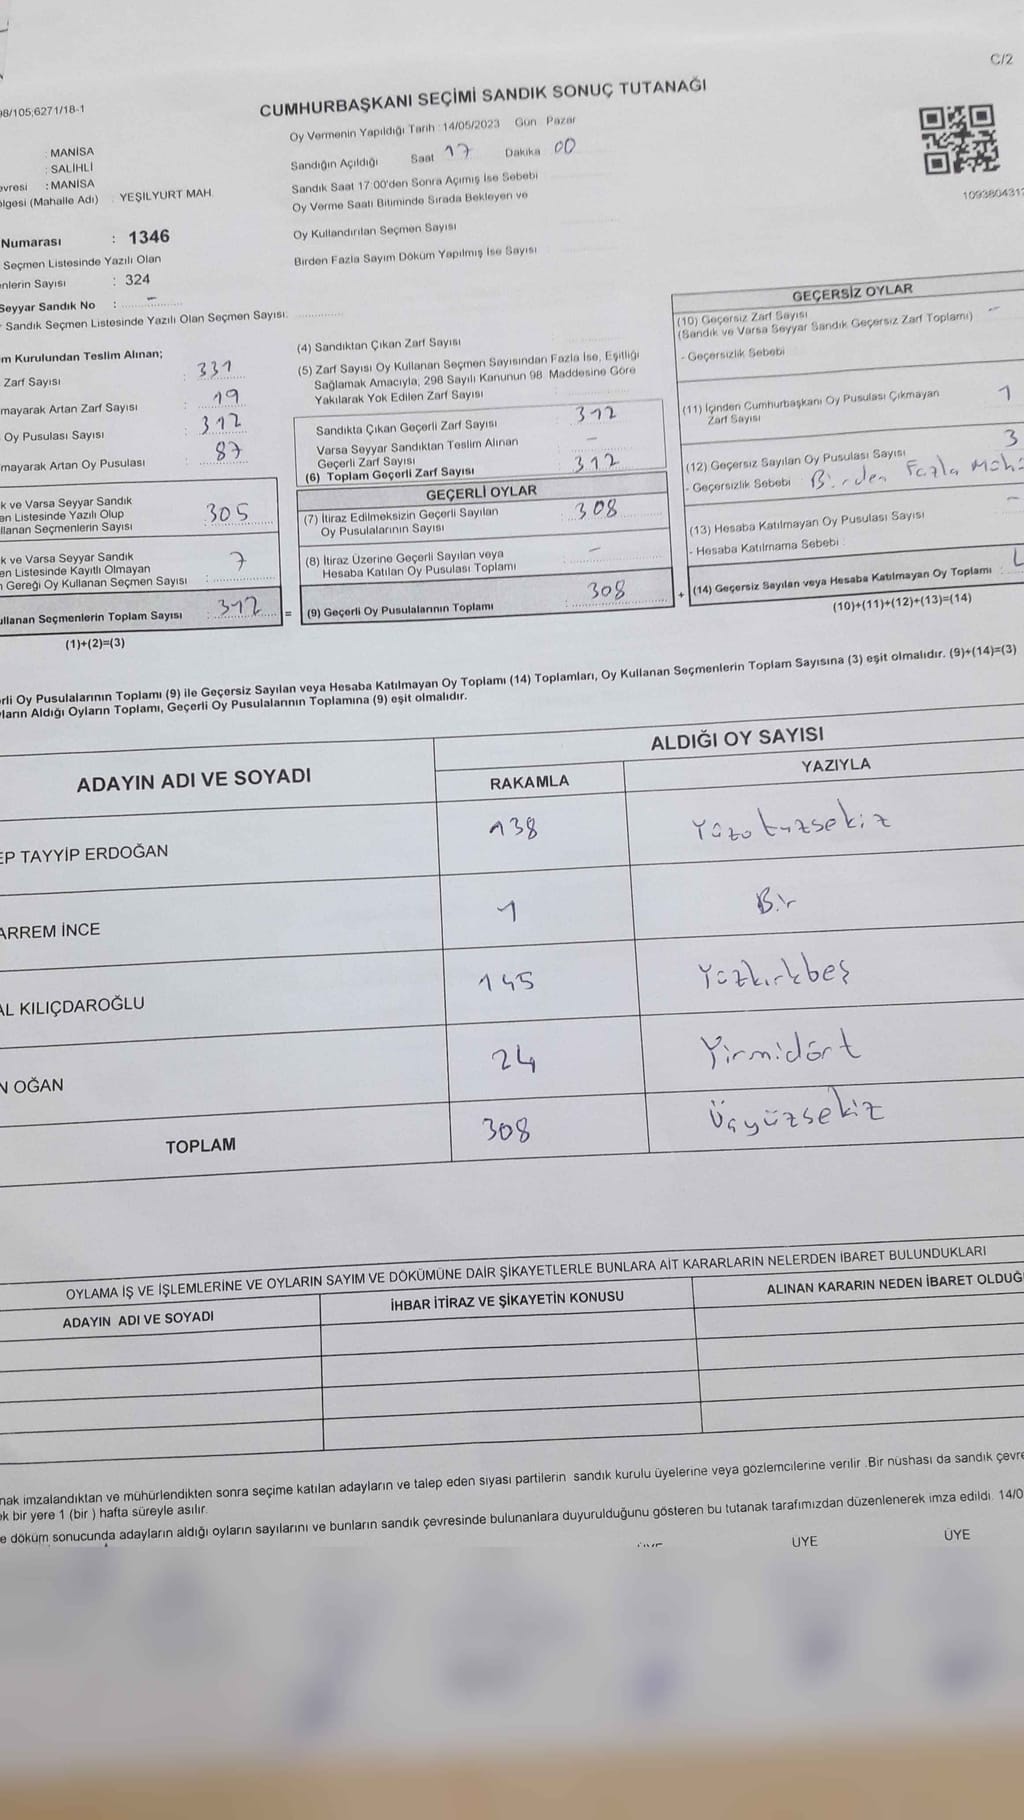 C/2
98/105;6271/18-1
CUMHURBAŞKANI SEÇİMİ SANDIK SONUÇ TUTANAĞI
Oy Vermenin Yapıldığı Tarih : 14/05/2023 Gün : Pazar
: MANİSA
: SALİHLİ
: MANİSA
(Mahalle Adı) : YEŞİLYURT MAH.
Sandığın Açıldığı Saat 17 Dakika 00
Sandık Saat 17:00'den Sonra Açımış İse Sebebi
Oy Verme Saati Bitiminde Sırada Bekleyen ve
Oy Kullandırılan Seçmen Sayısı
Birden Fazla Sayım Döküm Yapılmış İse Sayısı
Numarası : 1346
Seçmen Listesinde Yazılı Olan
Sayısı : 324
Seyyar Sandık No : -
Sandık Seçmen Listesinde Yazılı Olan Seçmen Sayısı:
Kurulundan Teslim Alınan;
Zarf Sayısı : 331
Artan Zarf Sayısı : 19
Oy Pusulası Sayısı : 312
Artan Oy Pusulası : 87
ve Varsa Seyyar Sandık
Listesinde Yazılı Olup
Seçmenlerin Sayısı 305
ve Varsa Seyyar Sandık
Listesinde Kayıtlı Olmayan
Gereği Oy Kullanan Seçmen Sayısı : 7
Seçmenlerin Toplam Sayısı : 312 =
(1)+(2)=(3)
(4) Sandıktan Çıkan Zarf Sayısı
(5) Zarf Sayısı Oy Kullanan Seçmen Sayısından Fazla İse, Eşitliği
Sağlamak Amacıyla, 298 Sayılı Kanunun 98. Maddesine Göre
Yakılarak Yok Edilen Zarf Sayısı
Sandıkta Çıkan Geçerli Zarf Sayısı : 312
Varsa Seyyar Sandıktan Teslim Alınan
Geçerli Zarf Sayısı : -
(6) Toplam Geçerli Zarf Sayısı : 312
GEÇERLİ OYLAR
(7) İtiraz Edilmeksizin Geçerli Sayılan
Oy Pusulalarının Sayısı : 308
(8) İtiraz Üzerine Geçerli Sayılan veya
Hesaba Katılan Oy Pusulası Toplamı : -
(9) Geçerli Oy Pusulalarının Toplamı : 308 +
109380431
GEÇERSİZ OYLAR
(10) Geçersiz Zarf Sayısı
(Sandık ve Varsa Seyyar Sandık Geçersiz Zarf Toplamı) -
- Geçersizlik Sebebi
(11) İçinden Cumhurbaşkanı Oy Pusulası Çıkmayan
Zarf Sayısı 1
(12) Geçersiz Sayılan Oy Pusulası Sayısı 3
- Geçersizlik Sebebi Birden Fazla
(13) Hesaba Katılmayan Oy Pusulası Sayısı -
- Hesaba Katılmama Sebebi :
(14) Geçersiz Sayılan veya Hesaba Katılmayan Oy Toplamı :
(10)+(11)+(12)+(13)=(14)
Oy Pusulalarının Toplamı (9) ile Geçersiz Sayılan veya Hesaba Katılmayan Oy Toplamı (14) Toplamları, Oy Kullanan Seçmenlerin Toplam Sayısına (3) eşit olmalıdır. (9)+(14)=(3)
Aldığı Oyların Toplamı, Geçerli Oy Pusulalarının Toplamına (9) eşit olmalıdır.
ADAYIN ADI VE SOYADI
ALDIĞI OY SAYISI
RAKAMLA YAZIYLA
TAYYİP ERDOĞAN 138 Yüzotuzsekiz
İNCE 1 Bir
KILIÇDAROĞLU 145 Yüzkırkbeş
OĞAN 24 Yirmidört
TOPLAM 308 Üçyüzsekiz
OYLAMA İŞ VE İŞLEMLERİNE VE OYLARIN SAYIM VE DÖKÜMÜNE DAİR ŞİKAYETLERLE BUNLARA AİT KARARLARIN NELERDEN İBARET BULUNDUKLARI
ADAYIN ADI VE SOYADI İHBAR İTİRAZ VE ŞİKAYETİN KONUSU ALINAN KARARIN NEDEN İBARET
imzalandıktan ve mühürlendikten sonra seçime katılan adayların ve talep eden siyasi partilerin sandık kurulu üyelerine veya gözlemcilerine verilir .Bir nüshası da sandık
bir yere 1 (bir ) hafta süreyle asılır.
döküm sonucunda adayların aldığı oyların sayılarını ve bunların sandık çevresinde bulunanlara duyurulduğunu gösteren bu tutanak tarafımızdan düzenlenerek imza edildi. 14/0
ÜYE ÜYE